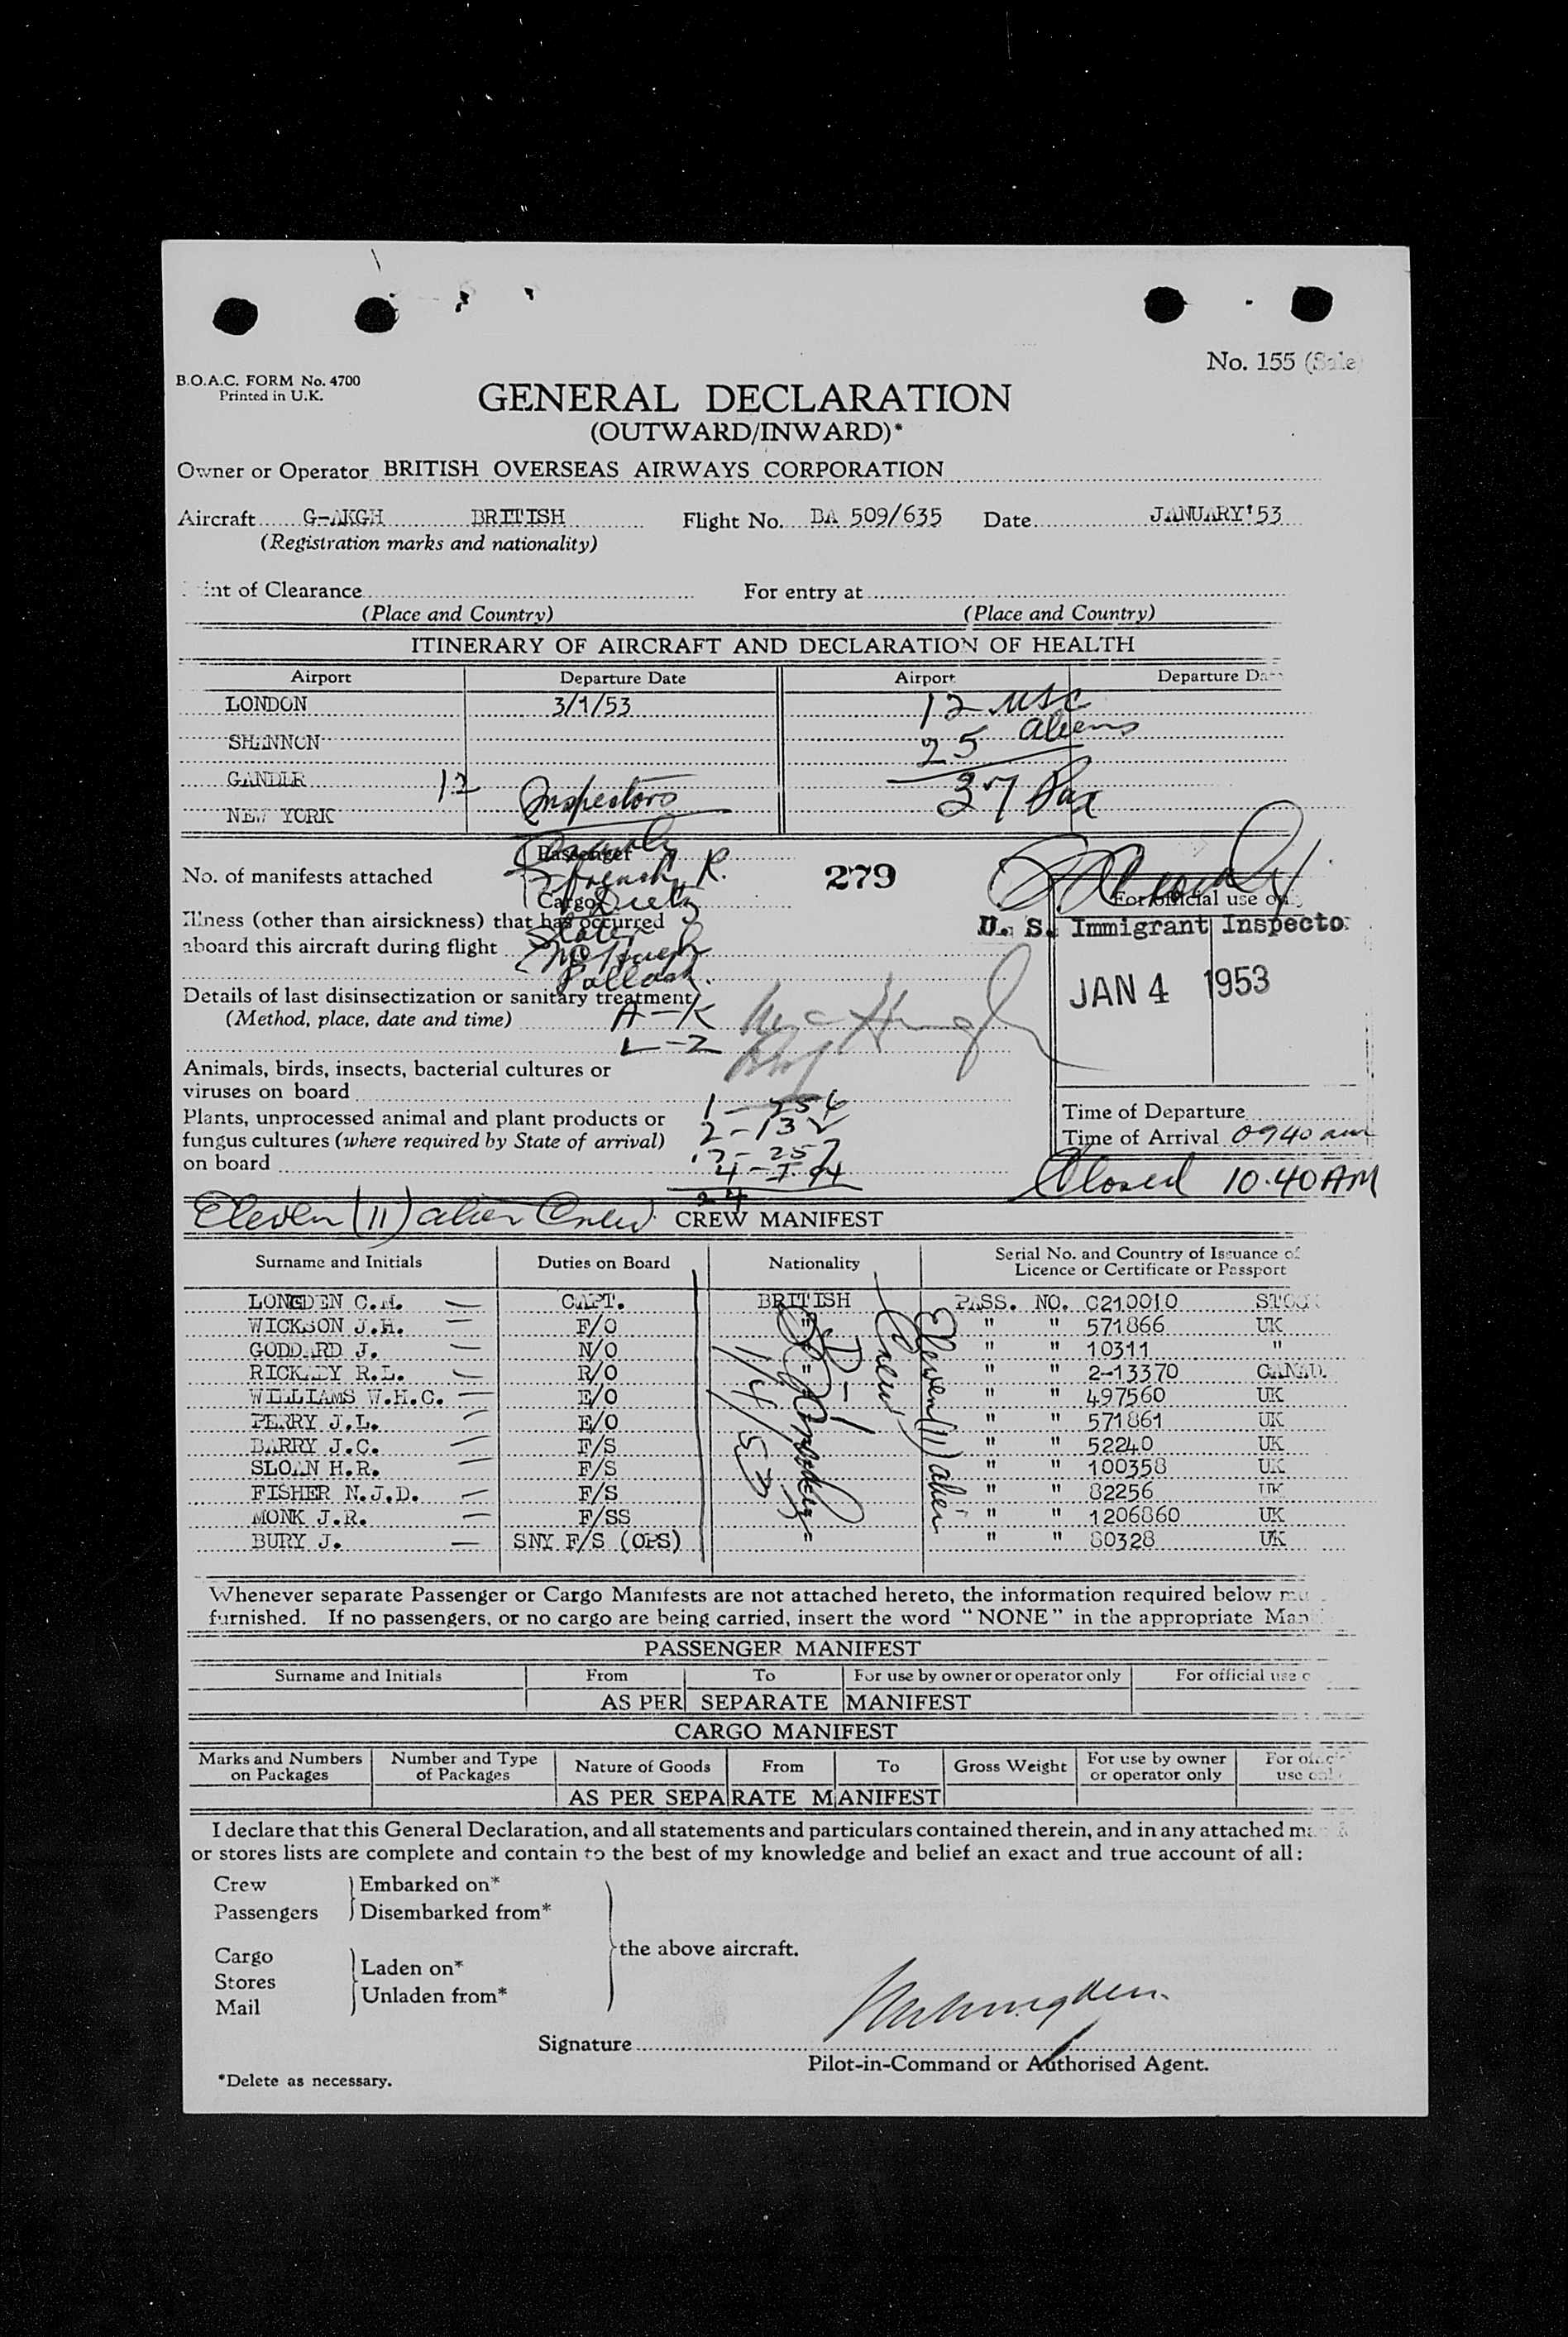 No. 155 (Sale
B.O.A.C. FORM No. 4700
Printed in U.K.
GENERAL DECLARATION
(OUTWARD/INWARD)*
Owner or Operator BRITISH OVERSEAS AIRWAYS CORPORATION
Aircraft G-AKGH BRITISH Flight No. BA 509/635 Date JANUARY'53
(Registration marks and nationality)
int of Clearance For entry at
(Place and Country) (Place and Country)
ITINERARY OF AIRCRAFT AND DECLARATION OF HEALTH
Airport Departure Date Airport Departure Da
LONDON 3/1/53 12 USC
SHANNON 25 aliens
GANDER 12 Inspectors 37 Pax
NEW YORK
Passenger
No. of manifests attached French R. 279
Cargo Dietz For official use on
Illness (other than airsickness) that has occurred U. S. Immigrant Inspecto
aboard this aircraft during flight
Pollock.
JAN 4 1953
Details of last disinsectization or sanitary treatment
(Method, place, date and time) A-K McHugh
L-Z
Animals, birds, insects, bacterial cultures or
viruses on board 1-
Plants, unprocessed animal and plant products or 2-13 Time of Departure
fungus cultures (where required by State of arrival) Time of Arrival 0940 am
on board
Closed 10.40 AM
Eleven (11) alien Crew. CREW MANIFEST
Surname and Initials Duties on Board Nationality Serial No. and Country of Issuance of
Licence or Certificate or Passport
LONGDEN C.M. CAPT. BRITISH PASS. NO. C210010
WICKSON J.H. F/O " " " 571866 UK
GODDARD J. N/O " " 10311 "
RICKADY R.L. R/O " " " 2-13370 CANAD.
WILLIAMS W.H.C. E/O " " 497560 UK
PERRY J.L. E/O " " 571861 UK
BARRY J.C. F/S " " 52240 UK
SLOAN H.R. F/S " " 100358 UK
FISHER N.J.D. F/S " " 82256 UK
MONK J.R. F/SS " " 1206860 UK
BURY J. SNY F/S (OPS) " " " 80328 UK
D-1
1/4/53
Eleven (11) alien
Crew
Whenever separate Passenger or Cargo Manifests are not attached hereto, the information required below mu
furnished. If no passengers, or no cargo are being carried, insert the word "NONE" in the appropriate Man
PASSENGER MANIFEST
Surname and Initials From To For use by owner or operator only For official use o
AS PER SEPARATE MANIFEST
CARGO MANIFEST
Marks and Numbers on Packages Number and Type of Packages Nature of Goods From To Gross Weight For use by owner or operator only For official use only
AS PER SEPARATE MANIFEST
I declare that this General Declaration, and all statements and particulars contained therein, and in any attached ma
or stores lists are complete and contain to the best of my knowledge and belief an exact and true account of all:
Crew Embarked on*
Passengers Disembarked from*
the above aircraft.
Cargo Laden on*
Stores
Mail Unladen from*
Signature
Pilot-in-Command or Authorised Agent.
*Delete as necessary.